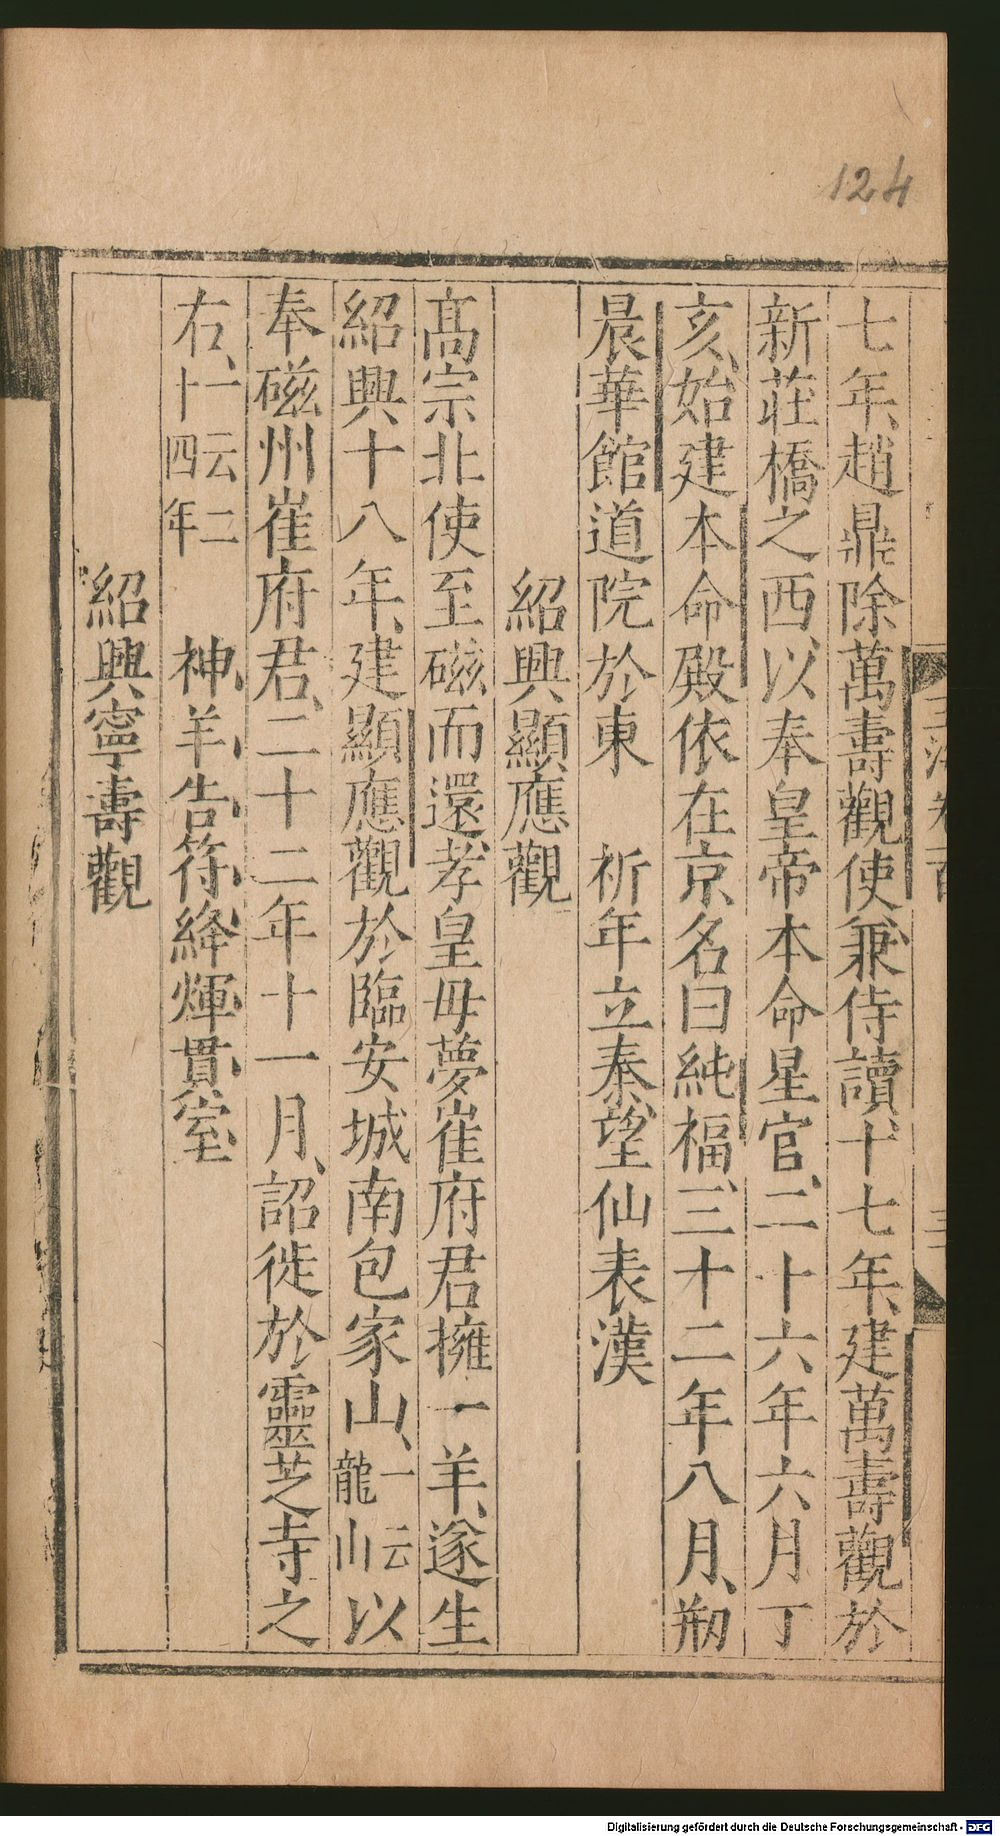 124
七年、趙鼎除萬壽觀使、兼侍讀、十七年、建萬壽觀於
新莊橋之西、以奉皇帝本命星官、二十六年六月丁
亥、始建本命殿依在京名曰純福、三十二年八月、剏
晨華館道院於東　祈年立秦、望仙表漢
紹興顯應觀
髙宗北使至磁而還、孝皇母夢崔府君擁一羊、遂生
紹興十八年、建顯應觀於臨安城南包家山、一云龍山以
奉磁州崔府君、二十二年十一月、詔徙於靈芝寺之
右、一云二十四年　神、羊、告、符、絳、輝、貫、室、
紹興寧壽觀
Digitalisierung gefördert durch die Deutsche Forschungsgemeinschaft - DFG